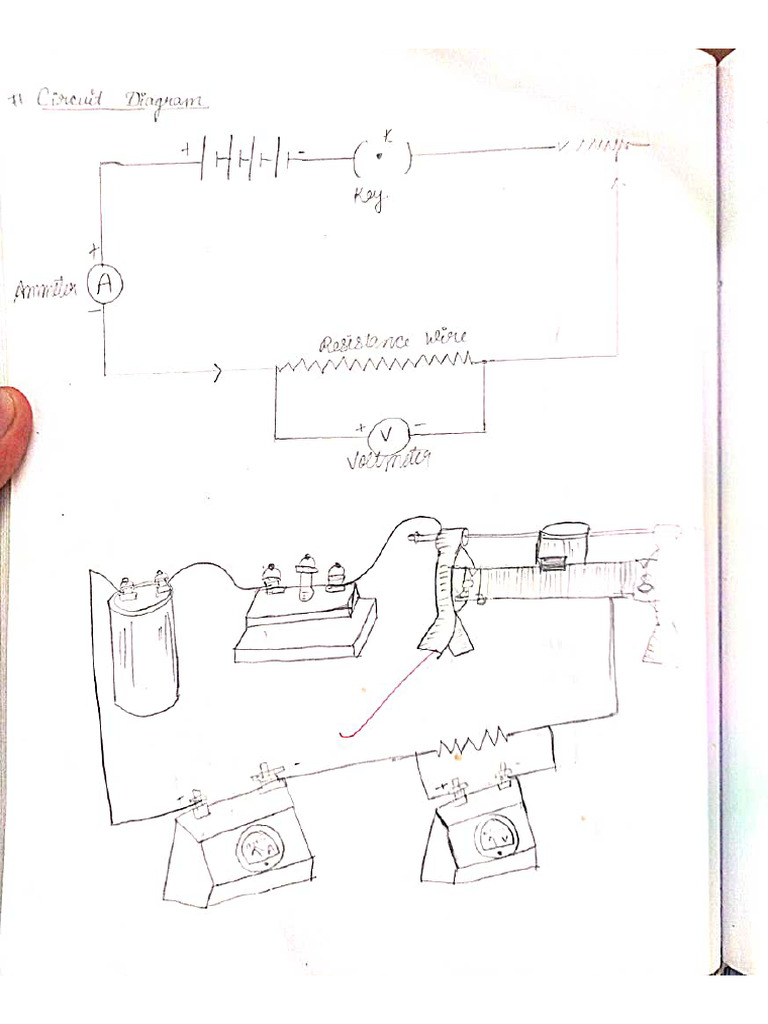 # Circuit Diagram
+ - K
Key.
+
Ammeter A
-
Resistance Wire
+ V -
Voltmeter
+ -
+ -
A
V